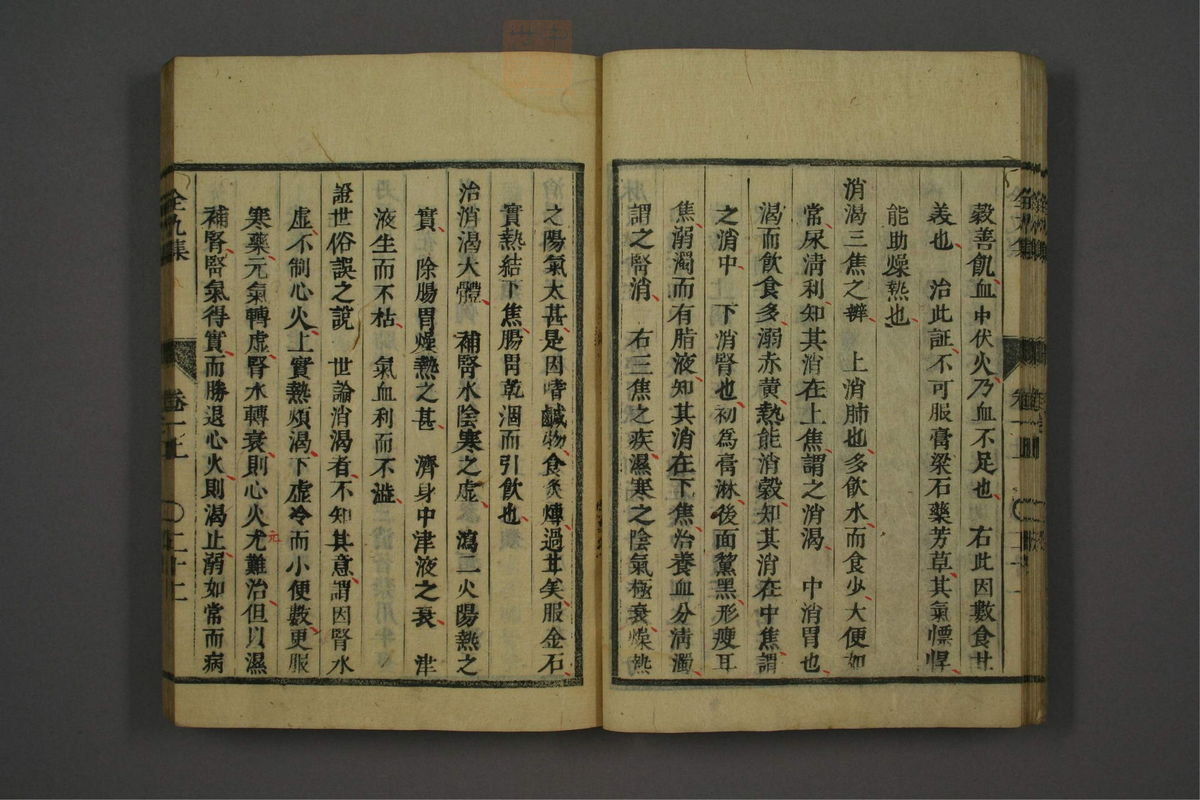 穀善飢血中伏火乃血不足也　右此因數食甘
美也　治此証不可服膏梁石藥芳草其氣慓悍
能助燥熱也
消渴三焦之辨　上消肺也多飲水而食少大便如
常尿清利知其消在上焦謂之消渴　中消胃也
渴而飲食多溺赤黃熱能消穀知其消在中焦謂
之消中　下消腎也初爲膏淋後面黧黑形瘦耳
焦溺濁而有脂液知其消在下焦治養血分清濁
謂之腎消　右三焦之疾濕寒之陰氣極衰燥熱
之陽氣太甚是因嗜鹹物食炙煿過甘美服金石
實熱結下焦腸胃乾涸而引飲也
治消渴大體　補腎水陰寒之虛　瀉二火陽熱之
實　除腸胃燥熱之甚　濟身中津液之衰　津
液生而不枯　氣血利而不澁
證世俗誤之說　世論消渴者不知其意謂因腎水
虛不制心火上實熱煩渴下虛冷而小便數更服
寒藥元氣轉虛腎水轉衰則心火尤難治但以濕
元
補腎腎氣得實而勝退心火則渴止溺如常而病
全九集
卷一上
二十二